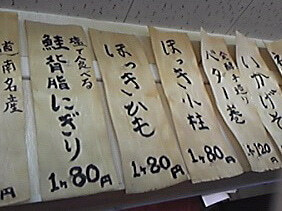 いかげそ
120円
タマ巻
1ヶ80円
ほっき小柱
1ヶ80円
ほっきひも
1ヶ80円
塩で食べる
鮭背脂にぎり
1ヶ80円
道南名産
円